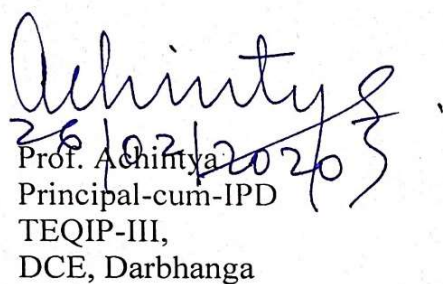 Achintya
26/02/2020
Prof. Achintya
Principal-cum-IPD
TEQIP-III,
DCE, Darbhanga